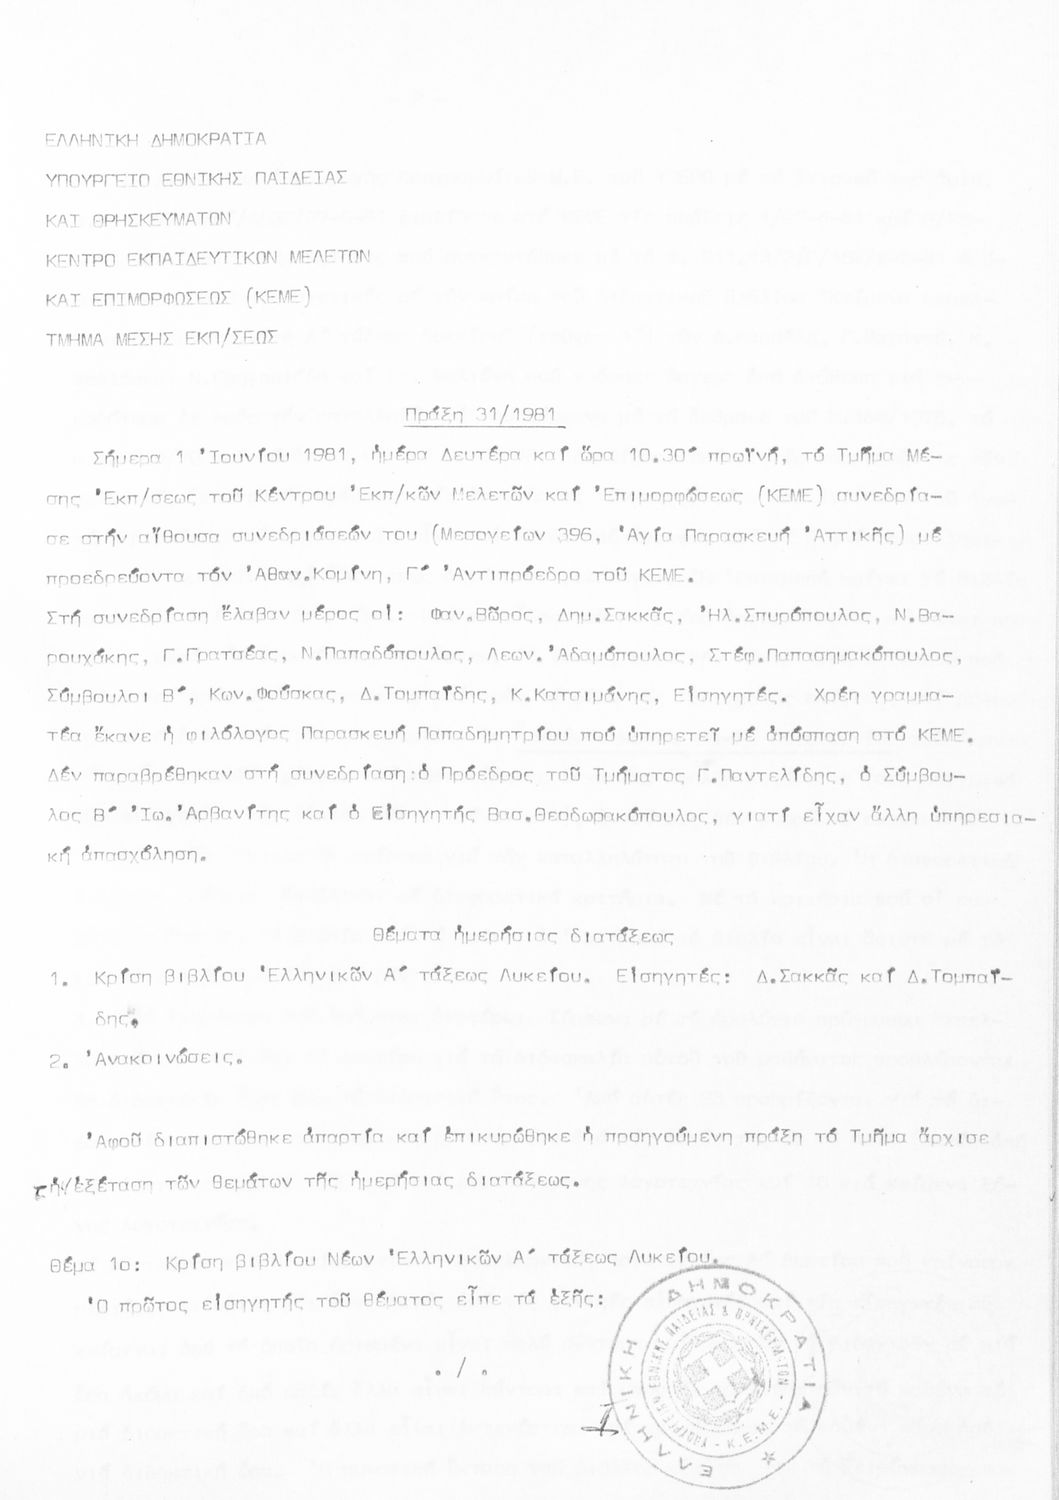 ΕΛΛΗΝΙΚΗ ΔΗΜΟΚΡΑΤΙΑ
ΥΠΟΥΡΓΕΙΟ ΕΘΝΙΚΗΣ ΠΑΙΔΕΙΑΣ
ΚΑΙ ΘΡΗΣΚΕΥΜΑΤΩΝ
ΚΕΝΤΡΟ ΕΚΠΑΙΔΕΥΤΙΚΩΝ ΜΕΛΕΤΩΝ
ΚΑΙ ΕΠΙΜΟΡΦΩΣΕΩΣ (ΚΕΜΕ)
ΤΜΗΜΑ ΜΕΣΗΣ ΕΚΠ/ΣΕΩΣ
Πράξη 31/1981
Σήμερα 1 Ἰουνίου 1981, ἡμέρα Δευτέρα καί ὥρα 10.30' πρωϊνή, τό Τμῆμα Μέ-
σης Ἐκπ/σεως τοῦ Κέντρου Ἐκπ/κῶν Μελετῶν καί Ἐπιμορφώσεως (ΚΕΜΕ) συνεδρία-
σε στήν αἴθουσα συνεδριάσεών του (Μεσογείων 396, Ἁγία Παρασκευή Ἀττικῆς) μέ
προεδρεύοντα τόν Ἀθαν.Κομίνη, Γ' Ἀντιπρόεδρο τοῦ ΚΕΜΕ.
Στή συνεδρίαση ἔλαβαν μέρος οἱ: Φαν.Βῶρος, Δημ.Σακκᾶς, Ἠλ.Σπυρόπουλος, Ν.Βα-
ρουχάκης, Γ.Γρατσέας, Ν.Παπαδόπουλος, Λεων.Ἀδαμόπουλος, Στέφ.Παπασημακόπουλος,
Σύμβουλοι Β', Κων.Φούσκας, Δ.Τομπαΐδης, Κ.Κατσιμάνης, Εἰσηγητές. Χρέη γραμμα-
τέα ἔκανε ἡ φιλόλογος Παρασκευή Παπαδημητρίου πού ὑπηρετεῖ μέ ἀπόσπαση στό ΚΕΜΕ.
Δέν παραβρέθηκαν στή συνεδρίαση:ὁ Πρόεδρος τοῦ Τμήματος Γ.Παντελίδης, ὁ Σύμβου-
λος Β' Ἰω.Ἀρβανίτης καί ὁ Εἰσηγητής Βασ.Θεοδωρακόπουλος, γιατί εἶχαν ἄλλη ὑπηρεσια-
κή ἀπασχόληση.
Θέματα ἡμερήσιας διατάξεως
1. Κρίση βιβλίου Ἑλληνικῶν Α' τάξεως Λυκείου. Εἰσηγητές: Δ.Σακκᾶς καί Δ.Τομπαΐ-
δης.
2. Ἀνακοινώσεις.
Ἀφοῦ διαπιστώθηκε ἀπαρτία καί ἐπικυρώθηκε ἡ προηγούμενη πράξη τό Τμῆμα ἄρχισε
τήν ἐξέταση τῶν θεμάτων τῆς ἡμερήσιας διατάξεως.
Θέμα 1ο: Κρίση βιβλίου Νέων Ἑλληνικῶν Α' τάξεως Λυκείου.
Ὁ πρῶτος εἰσηγητής τοῦ θέματος εἶπε τά ἑξῆς:
./.
ΕΛΛΗΝΙΚΗ ΔΗΜΟΚΡΑΤΙΑ
ΥΠΟΥΡΓΕΙΟΝ ΕΘΝΙΚΗΣ ΠΑΙΔΕΙΑΣ & ΘΡΗΣΚΕΥΜΑΤΩΝ
Κ.Ε.Μ.Ε.